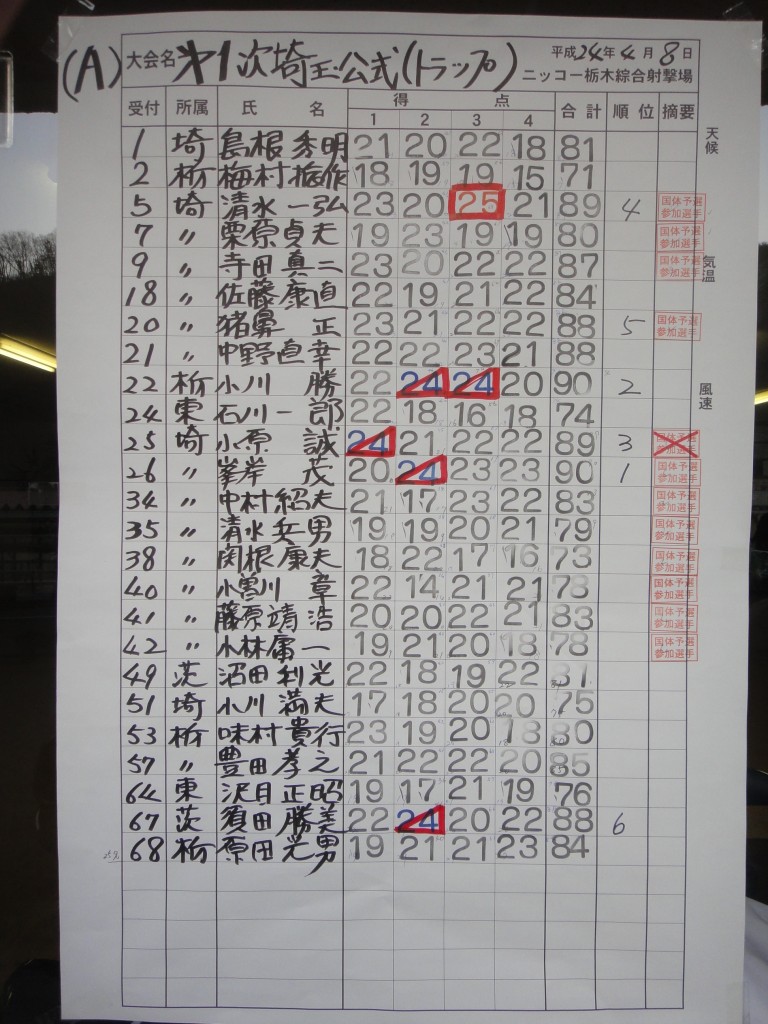 (A) 大会名 オ1次埼玉公式(トラップ) 平成24年4月8日
ニッコー栃木綜合射撃場
受付 所属 氏名 得点 合計 順位 摘要
1 2 3 4
天候
気温
風速
1 埼 島根秀明 21 20 22 18 81
2 栃 梅村 18 19 19 15 71
5 埼 清水一弘 23 20 25 21 89 4 国体予選参加選手
7 〃 栗原貞夫 19 23 19 19 80 国体予選参加選手
9 〃 寺田真二 23 20 22 22 87 国体予選参加選手
18 〃 佐藤康直 22 19 21 22 84
20 〃 猪鼻正 23 21 22 22 88 5 国体予選参加選手
21 〃 中野直幸 22 22 23 21 88
22 栃 小川勝 22 24 24 20 90 2
24 東 石川一郎 22 18 16 18 74
25 埼 小原誠 24 21 22 22 89 3 国体予選参加選手
26 〃 峯岸茂 20 24 23 23 90 1 国体予選参加選手
34 〃 中村紹夫 21 17 23 22 83 国体予選参加選手
35 〃 清水兵男 19 19 20 21 79 国体予選参加選手
38 〃 関根康夫 18 22 17 16 73 国体予選参加選手
40 〃 小曽川章 22 14 21 21 78 国体予選参加選手
41 〃 藤原靖浩 20 20 22 21 83 国体予選参加選手
42 〃 小林庸一 19 21 20 18 78 国体予選参加選手
49 茨 沼田利光 22 18 19 22 81
51 埼 小川満夫 17 18 20 20 75
53 栃 味村貴行 23 19 20 18 80
57 〃 豊田孝之 21 22 22 20 85
64 東 沢目正昭 19 17 21 19 76
67 茨 須田勝美 22 24 20 22 88 6
68 栃 原田光男 19 21 21 23 84